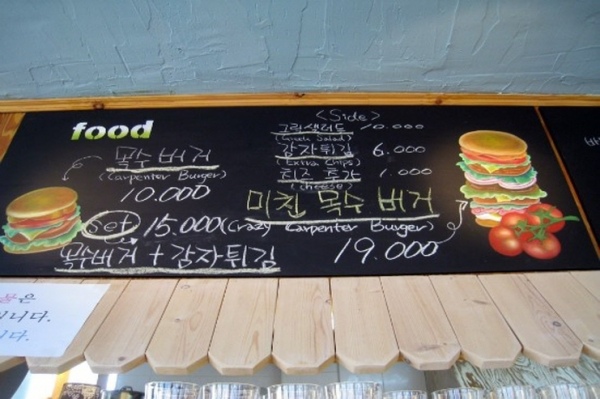 food
목수 버거
(Carpenter Burger)
10.000
Set 15.000
목수버거 + 감자튀김
<Side>
그릭샐러드 10.000
(Greek Salad)
감자튀김 6.000
(Extra Chips)
치즈 추가 1.000
(Cheese)
미친 목수 버거
(Crazy Carpenter Burger)
19.000
은
니다.
니다.